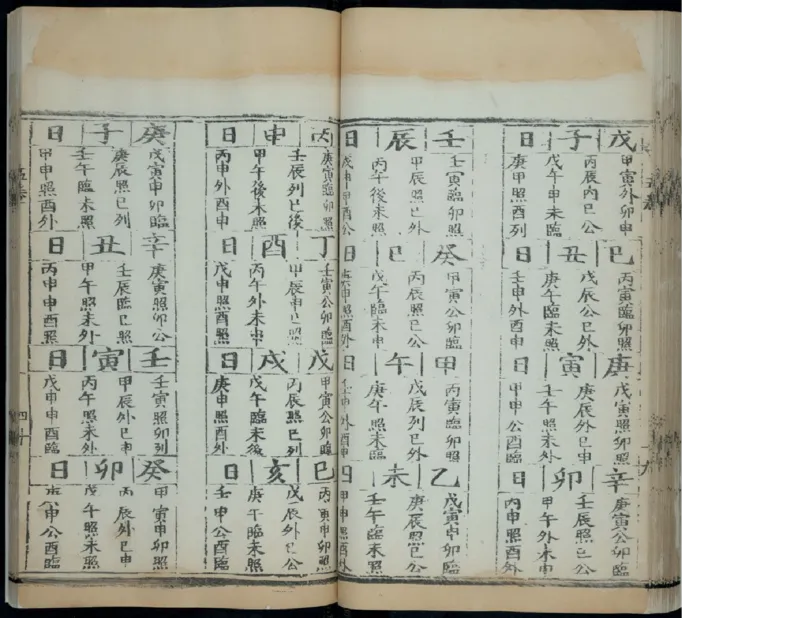 戊子日
甲寅外卯申
丙辰內巳公
戊午申未臨
庚申照酉列
巳丑日
丙寅臨卯照
戊辰公巳外
庚午臨未照
壬申外酉申
庚寅日
戊寅照卯照
庚辰外巳申
壬午照未外
甲申公酉臨
辛卯日
庚寅公卯臨
壬辰照巳公
甲午外未申
丙申照酉外
壬辰日
壬寅臨卯照
甲辰照巳外
丙午後未照
戊申申酉公
癸巳日
甲寅公卯臨
丙辰照巳公
戊午臨未申
庚申照酉外
甲午日
丙寅臨卯照
戊辰列巳外
庚午照未臨
壬申外酉申
乙未日
戊寅申卯臨
庚辰照巳公
壬午臨未照
甲申照酉外
丙申日
庚寅臨卯照
壬辰列巳後
甲午後未照
丙申外酉申
丁酉日
壬寅公卯臨
甲辰申巳照
丙午外未申
戊申照酉照
戊戌日
甲寅公卯臨
丙辰照巳列
戊午臨未後
庚申照酉外
巳亥日
丙寅申卯照
戊辰外巳公
庚午臨未照
壬申公酉臨
庚子日
戊寅申卯臨
庚辰照巳列
壬午臨未照
甲申照酉外
辛丑日
庚寅照卯公
壬辰臨巳照
甲午照未外
丙申申酉照
壬寅日
壬寅照卯列
甲辰外巳申
丙午照未外
戊申申酉臨
癸卯日
甲寅申卯照
丙辰外巳申
戊午照未照
庚申公酉臨